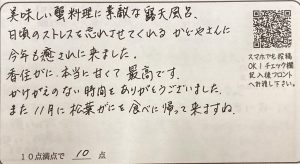 美味しい蟹料理に素敵な露天風呂、
日頃のストレスを忘れさせてくれる かどやさんに
今年も癒されに来ました。
香住がに、本当に甘くて 最高です。
かけがえのない時間をありがとうございました。
また 11月に 松葉がにを 食べに帰って来ますね
スマホでも投稿
OK！チェック欄
記入後フロント
へお渡し下さい。
10点満点で 10 点